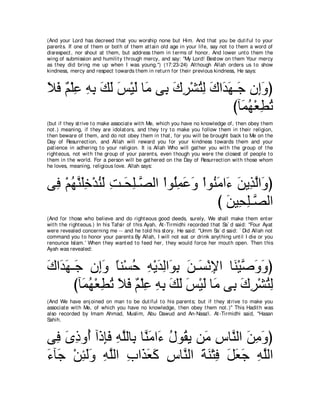 (And your Lord has decreed that you worship none but Him. And that you be dutiful to your
parents. If one of them or both of them attain old age in your life, say not to them a word of
disrespect, nor shout at them, but address them in terms of honor. And lower unto them the
wing of submission and humility through mercy, and say: "My Lord! Bestow on them Your mercy
as they did bring me up when I was young.") (17:23-24) Although Allah orders us to show
kindness, mercy and respect towards them in return for their previous kindness, He says:
﴿وَإِن جَـهَدَاكَ لِتُشْرِكَ بِى مَا لَيْسَ لَكَ بِهِ عِلْمٌ فَلاَ
تُطِعْهُمَآ﴾
(but if they strive to make associate with Me, which you have no knowledge of, then obey them
not.) meaning, if they are idolators, and they try to make you follow them in their religion,
then beware of them, and do not obey them in that, for you will be brought back to Me on the
Day of Resurrection, and Allah will reward you for your kindness towards them and your
patience in adhering to your religion. It is Allah Who will gather you with the group of the
righteous, not with the group of your parents, even though you were the closest of people to
them in the world. For a person will be gathered on the Day of Resurrection with those whom
he loves, meaning, religious love. Allah says:
﴿وَالَّذِينَ ءَامَنُواْ وَعَمِلُواْ الصَّـلِحَـتِ لَنُدْخِلَنَّهُمْ فِى
الصَّـلِحِينَ ﴾
(And for those who believe and do righteous good deeds, surely, We shall make them enter
with the righteous.) In his Tafsir of this Ayah, At-Tirmidhi recorded that Sa`d said: "Four Ayat
were revealed concerning me -- and he told his story. He said: "Umm Sa`d said: `Did Allah not
command you to honor your parents By Allah, I will not eat or drink anything until I die or you
renounce Islam.' When they wanted to feed her, they would force her mouth open. Then this
Ayah was revealed:
﴿وَوَصَّيْنَا الإِنْسَـنَ بِوَالِدَيْهِ حُسْناً وَإِن جَـهَدَاكَ
لِتُشْرِكَ بِى مَا لَيْسَ لَكَ بِهِ عِلْمٌ فَلاَ تُطِعْهُمَآ﴾
(And We have enjoined on man to be dutiful to his parents; but if they strive to make you
associate with Me, of which you have no knowledge, then obey them not.)" This Hadith was
also recorded by Imam Ahmad, Muslim, Abu Dawud and An-Nasa'i. At-Tirmidhi said, "Hasan
Sahih.
﴿وَمِنَ النَّاسِ مَن يِقُولُ ءَامَنَّا بِاللَّهِ فَإِذَآ أُوذِىَ فِى
اللَّهِ جَعَلَ فِتْنَةَ النَّاسِ كَعَذَابِ اللَّهِ وَلَئِنْ جَآءَ